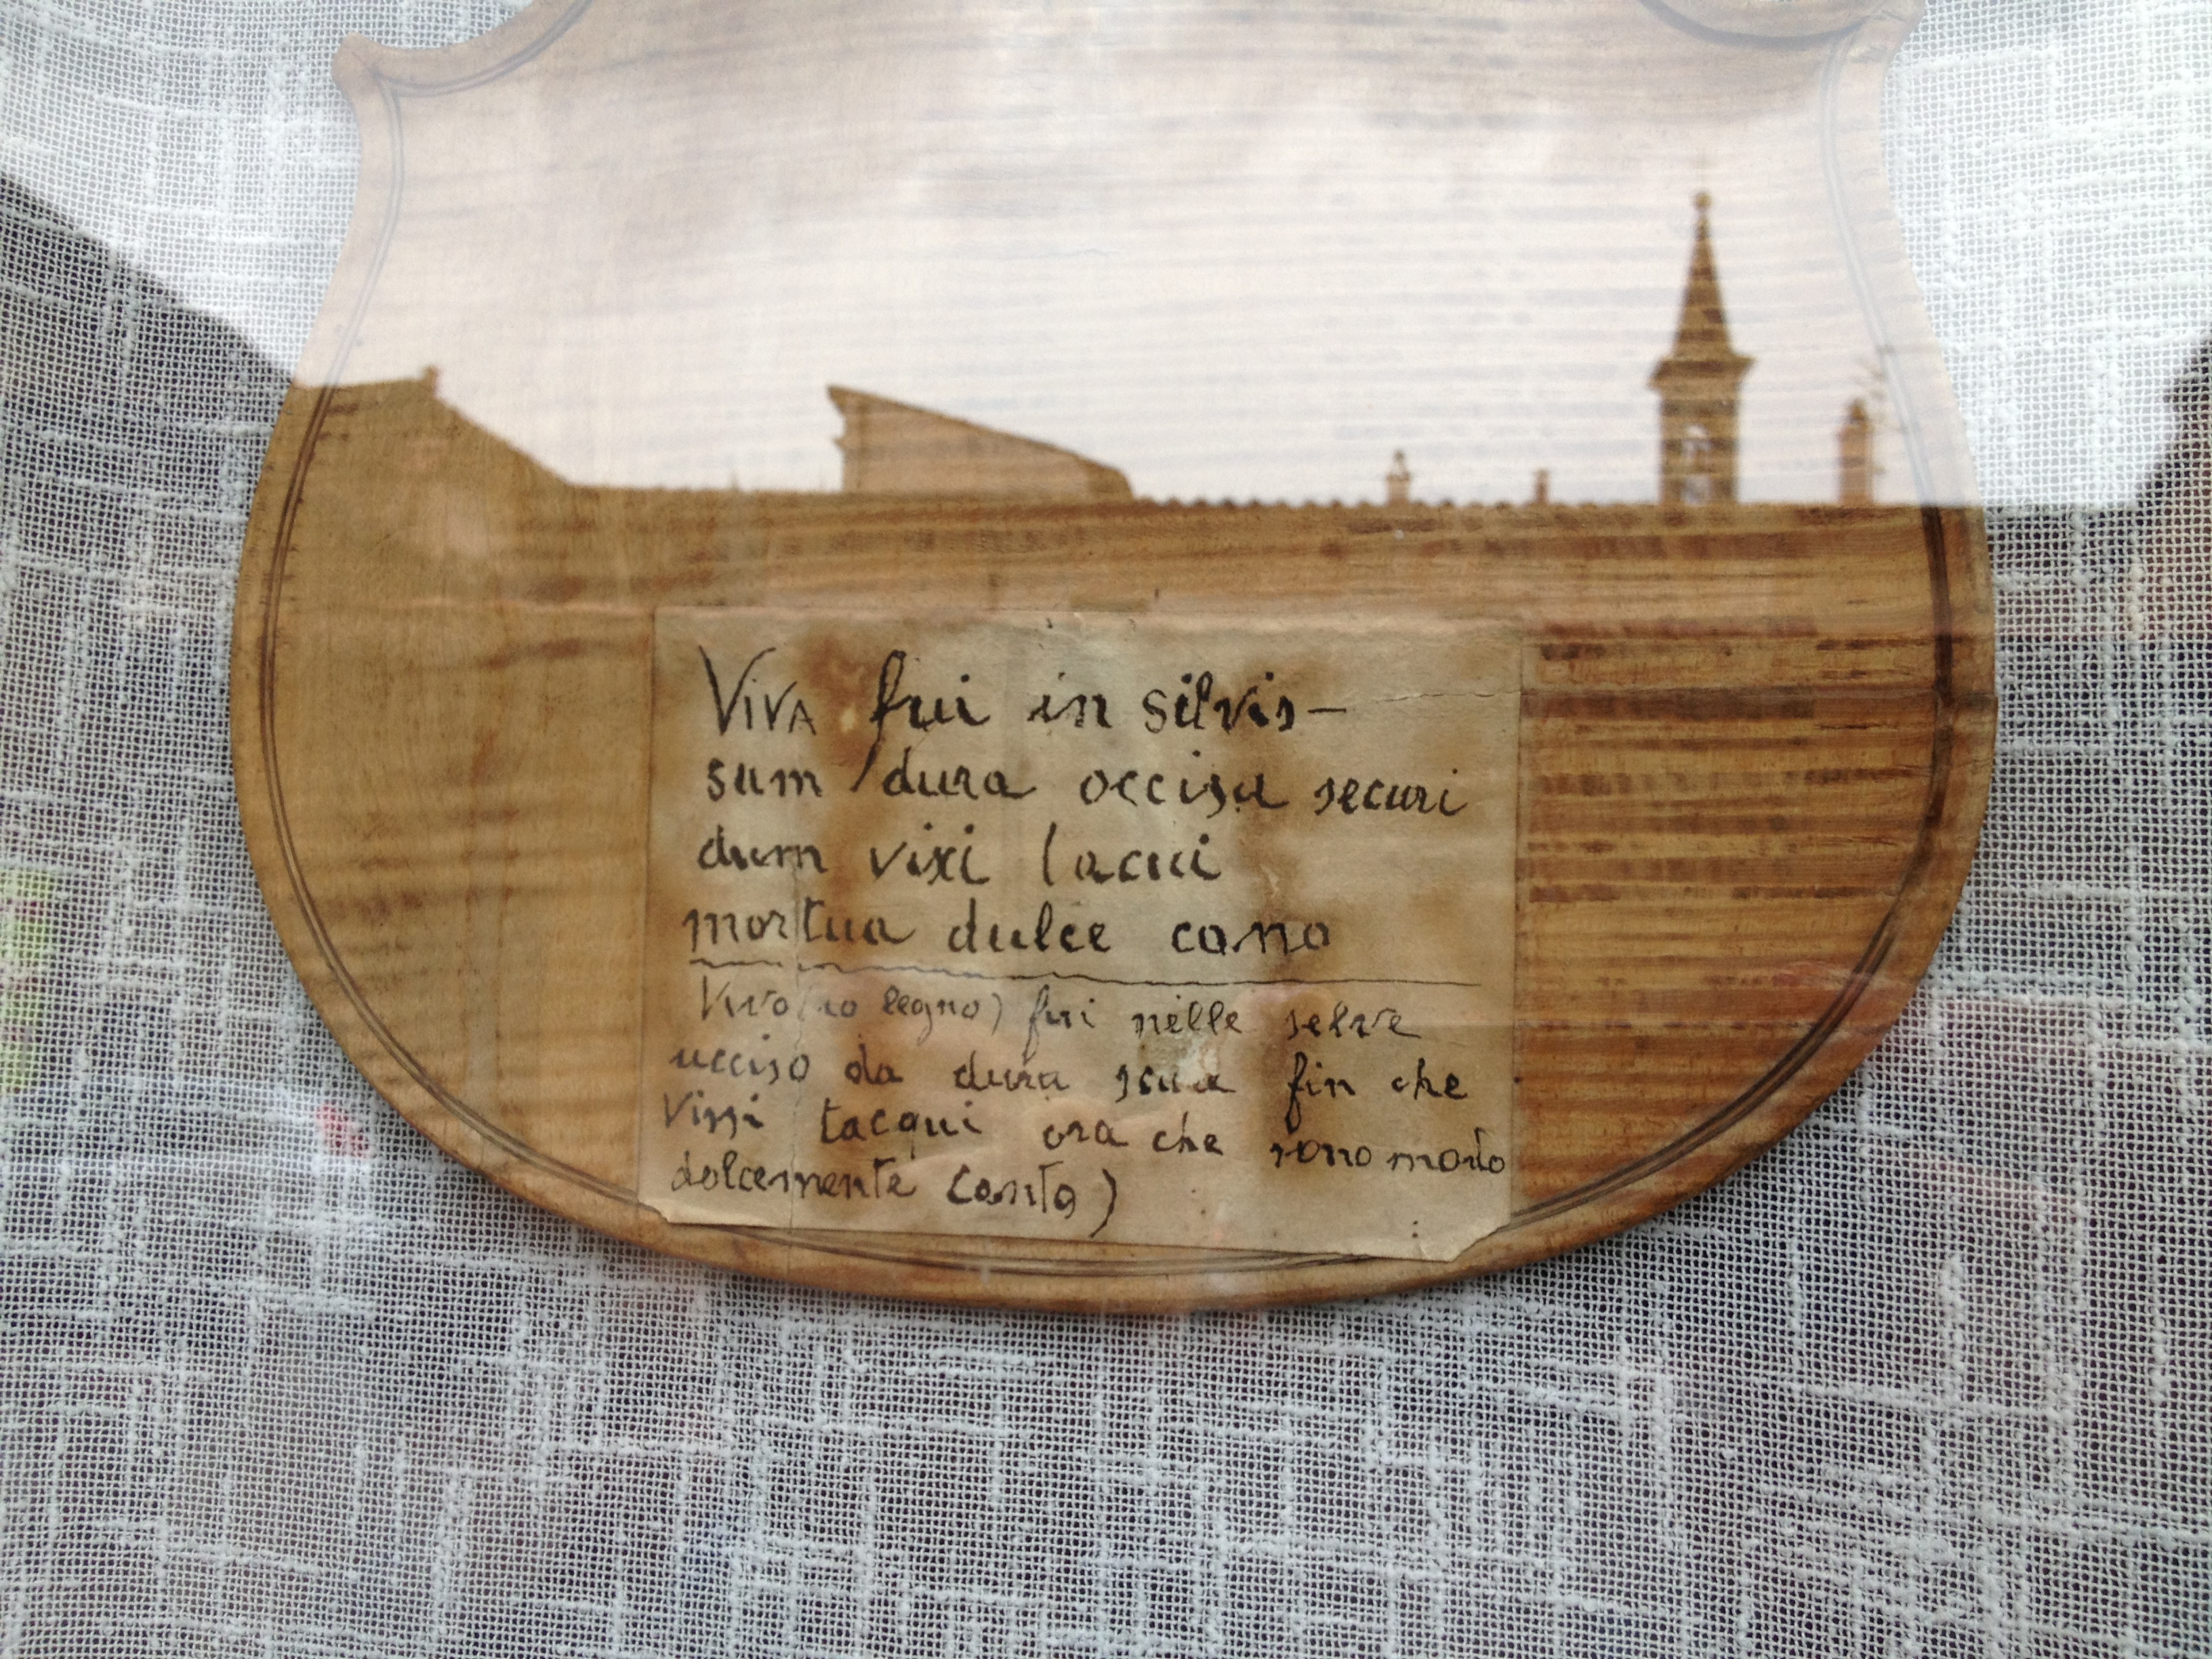 VIVA fui in silvis–
sum dura occisa securi
dum vixi tacui
mortua dulce cano
Vivo (io legno) fui nelle selve
ucciso da dura scure fin che
vissi tacqui ora che sono morto
dolcemente canto)